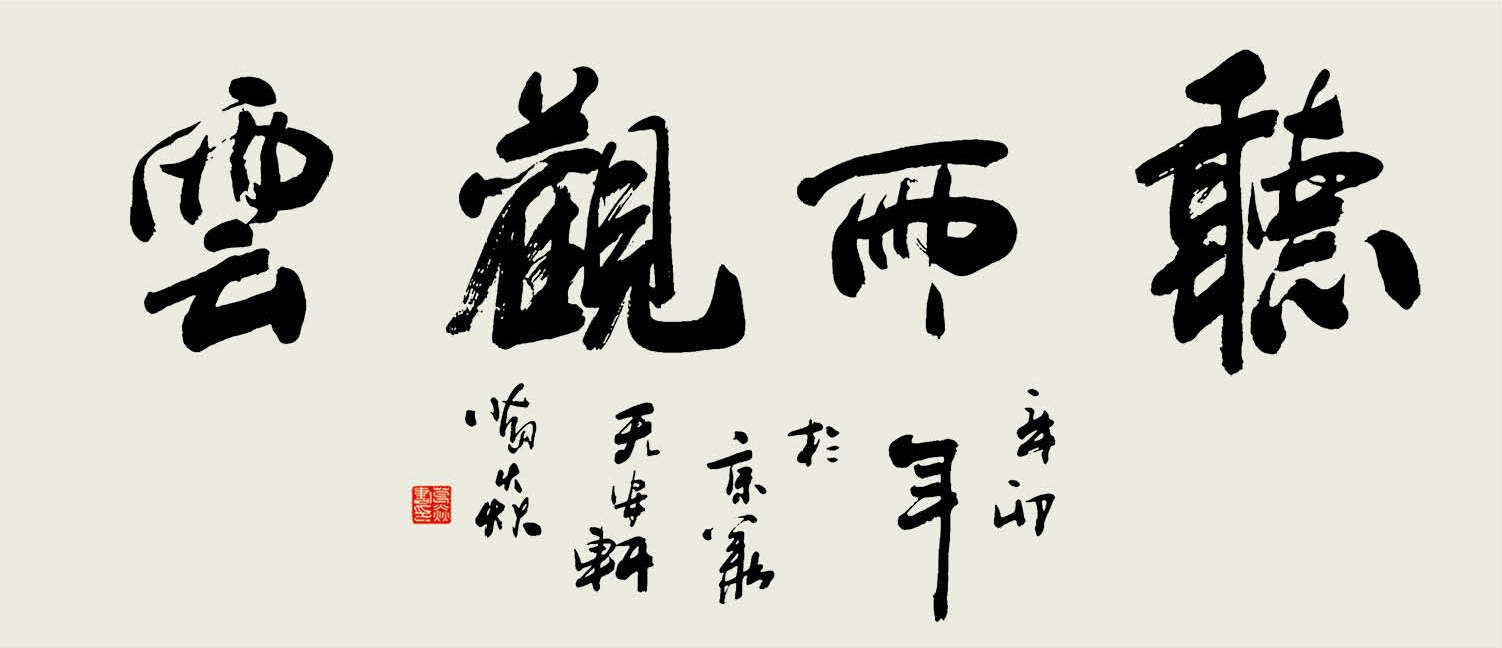 聽雨觀雲
辛卯
年
於
京華
无安軒